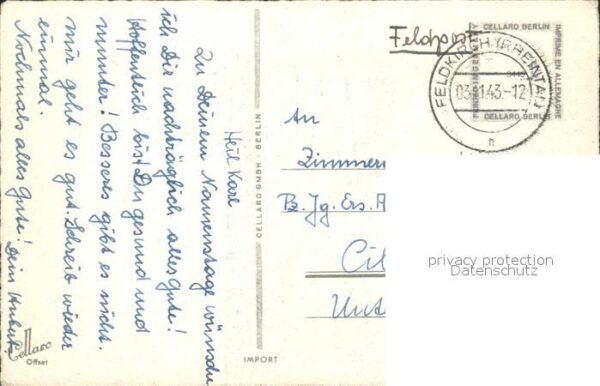 Heil Karl
Zu Deinem Namenstage wünsche
ich Dir nachträglich alles Gute!
Hoffentlich bist Du gesund und
munter! Besseres gibt es nicht.
mir geht es gut. Schreib wieder
einmal.
Nochmals alles Gute! Dein Hubert
Cellaro
Offset
CELLARO GMBH · BERLIN
IMPORT
Feldpost
CELLARO BERLIN
IMPRIMÉ EN ALLEMAGNE
CELLARO BERLIN
FELDKIRCH (RHEINTAL)
03. 43.-12
h
An
B. Jg. Ers.
privacy protection
Datenschutz